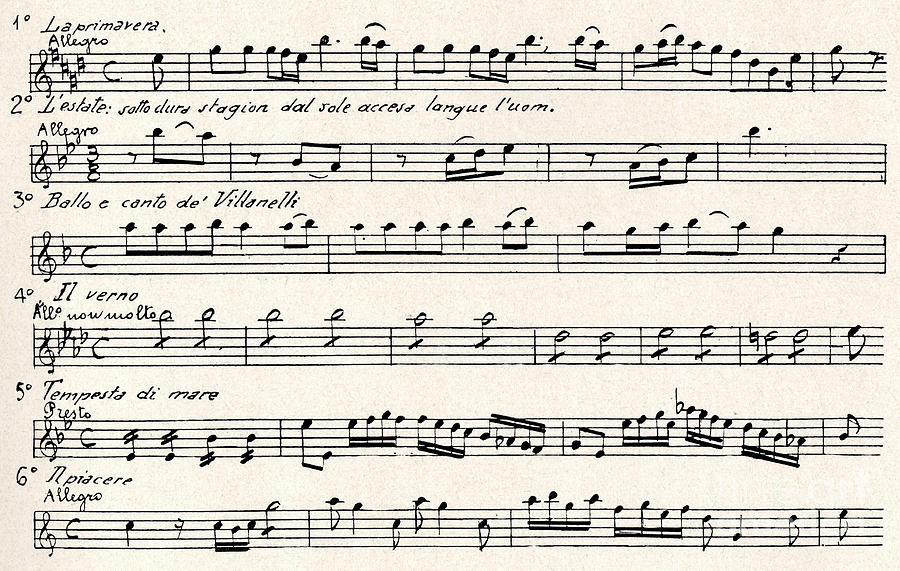 1° La primavera.
Allegro
2° L'estate: sotto dura stagion dal sole accesa langue l'uom.
Allegro
3
8
3° Ballo e canto de' Villanelli
4° Il verno
All° non molto
5° Tempesta di mare
Presto
6° Il piacere
Allegro